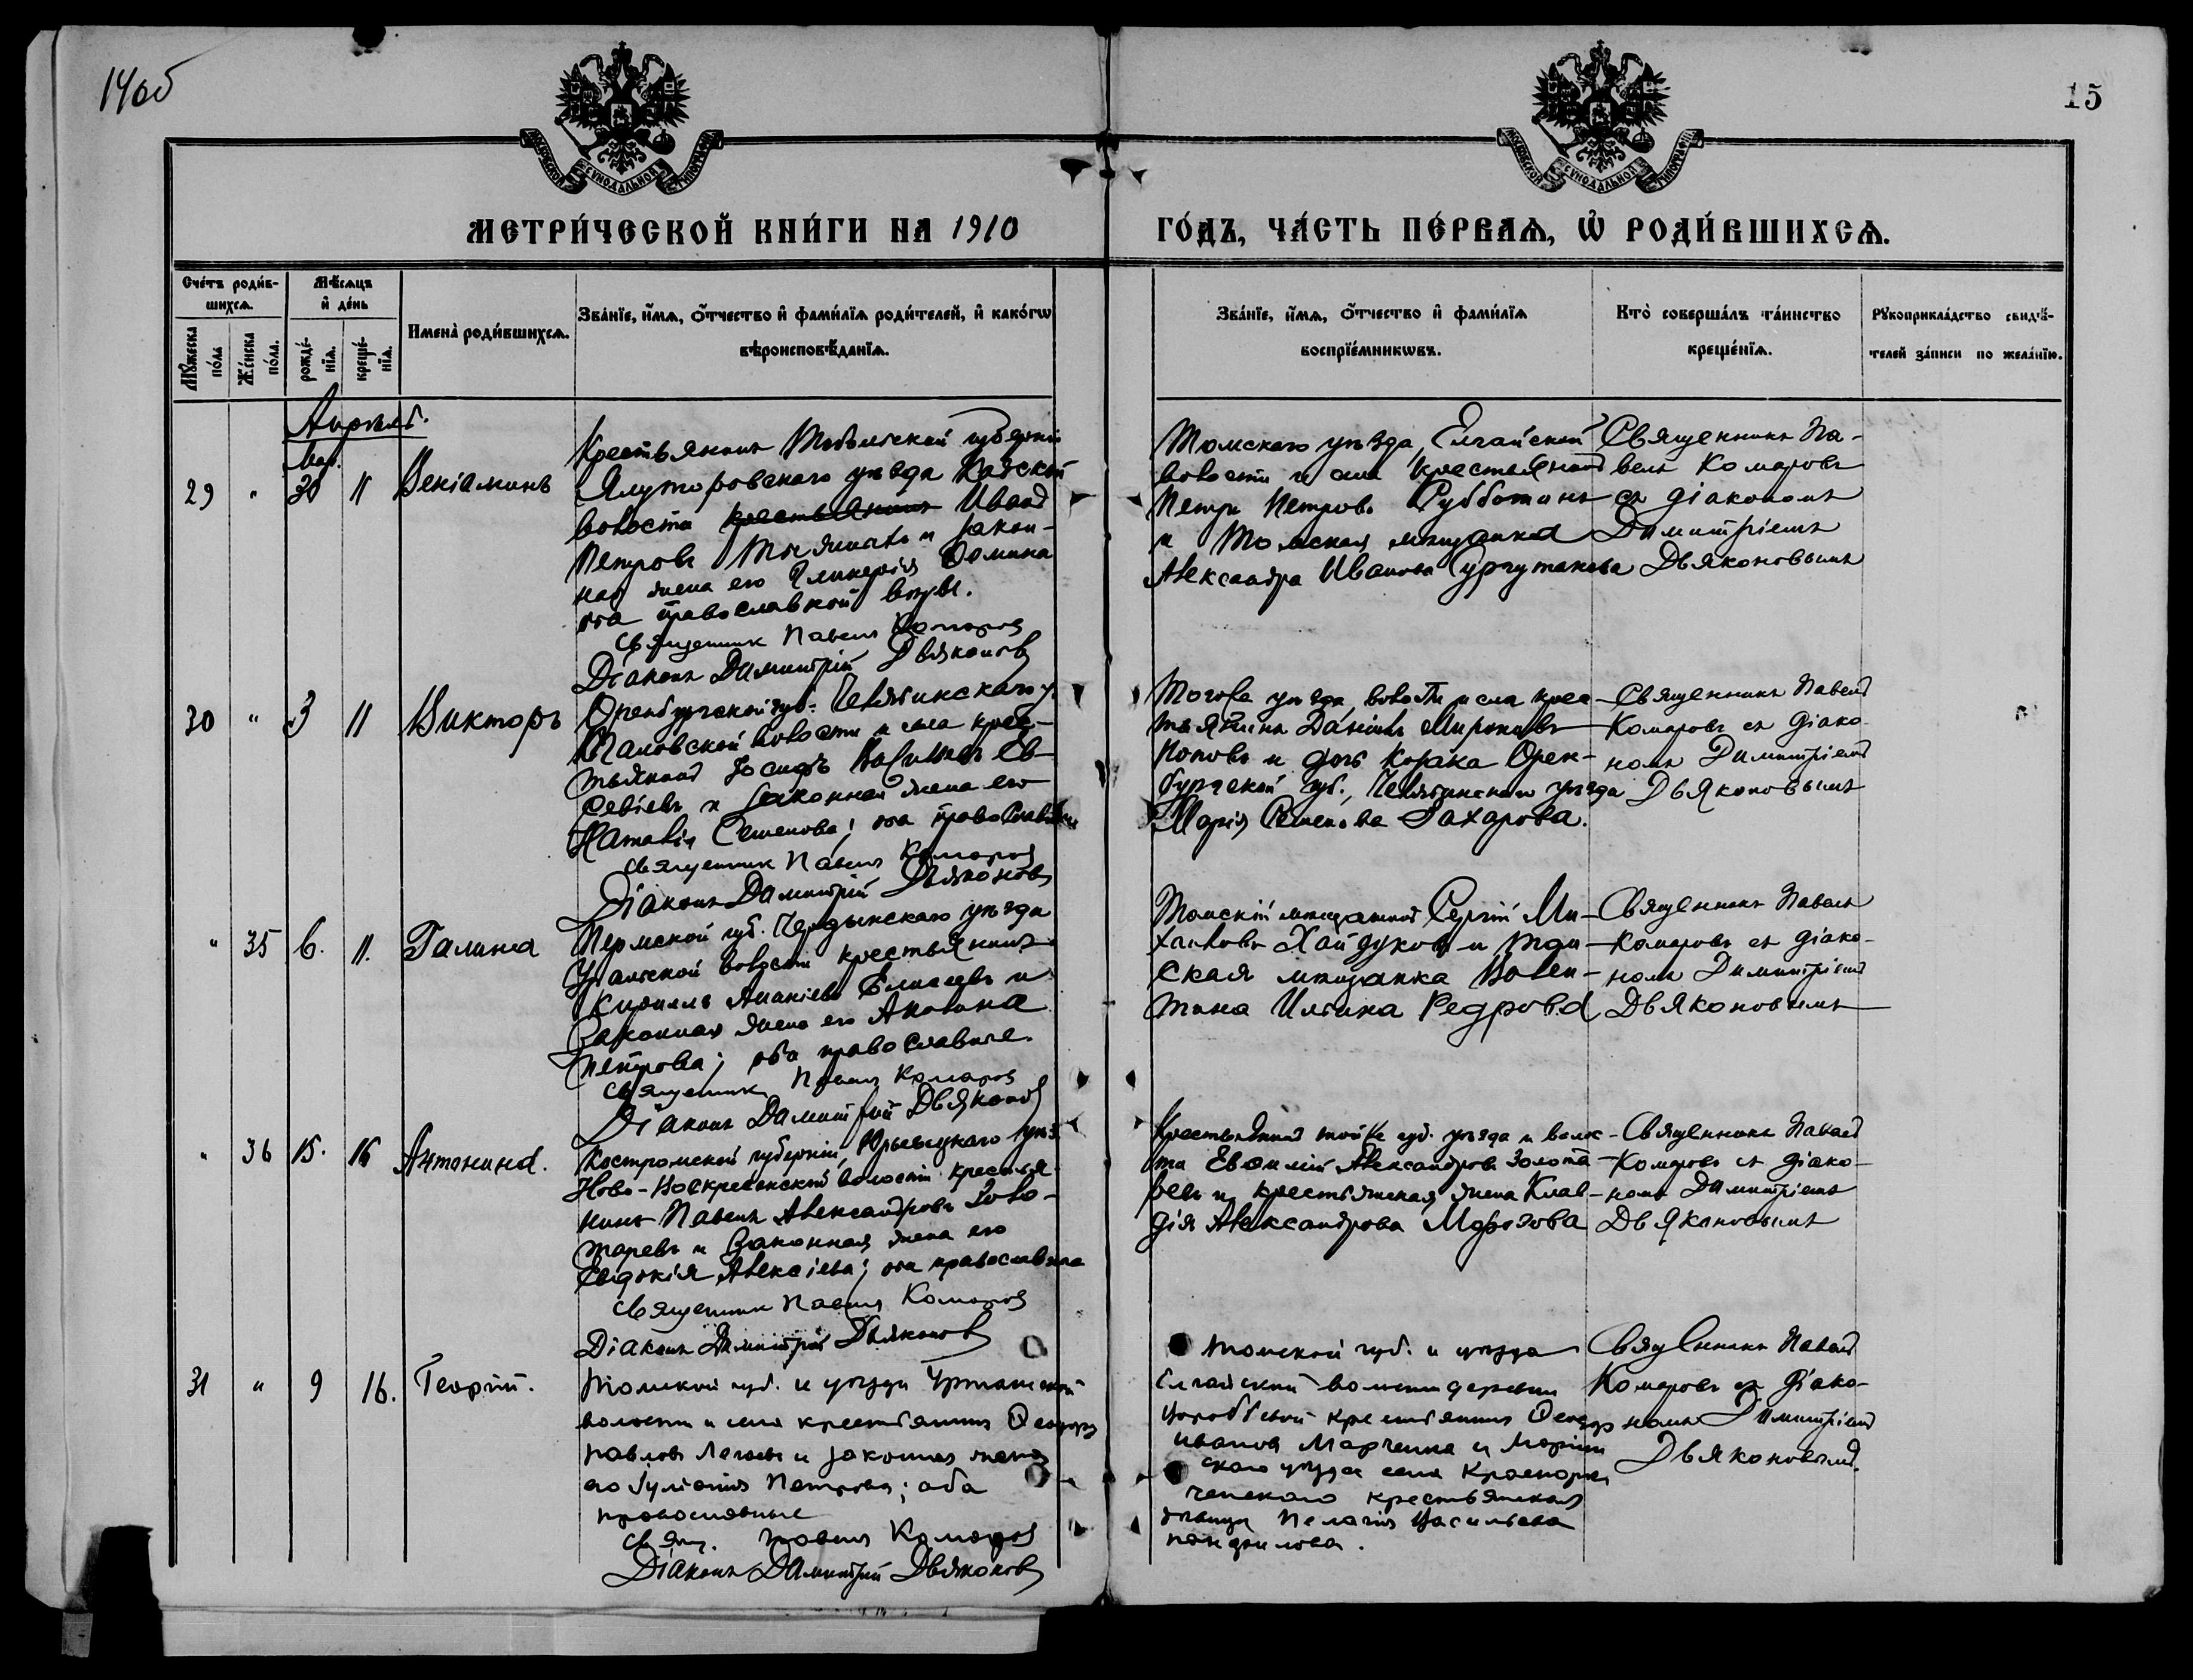 14об
15
МОСКОВСКОЙ СѴНОДАЛЬНОЙ ТИПОГРАФІИ
МОСКОВСКОЙ СѴНОДАЛЬНОЙ ТИПОГРАФІИ
МЕТРИ́ЧЕСКОЙ КНИ́ГИ НА 1910 ГО́ДЪ, ЧА́СТЬ ПЕ́РВАѦ, Ѡ҆ РОДИ́ВШИХСѦ.
Сче́тъ роди́в-
шихсѧ.
Мꙋ́жеска по́ла
Же́нска по́ла.
Мѣ́сѧцъ
и҆ де́нь
рожде́-
нїѧ.
креще́-
нїѧ.
Имена̀ роди́вшихсѧ.
Зва́нїе, и҆́мѧ, ѻ҆́тчество и҆ фами́лїѧ роди́телей, и҆ како́гѡ
вѣроисповѣ́данїѧ.
Зва́нїе, и҆́мѧ, ѻ҆́тчество и҆ фами́лїѧ
воспрїе́мникѡвъ.
Кто̀ соверша́лъ та́инство
креще́нїѧ.
Рꙋкоприкла́дство свидѣ́-
телей за́писи по жела́нїю.
Апрѣль.
Мар.
29 " 30 11 Веніаминъ
Крестьянинъ Тобольской губерніи
Ялуторовскаго уѣзда
волости крестьянинъ Иванъ
Петровъ и закон-
ная жена его Гликерія Фомина
оба православной вѣры.
Священникъ Павелъ Комаровъ
Діаконъ Димитрій Дьяконовъ
Томскаго уѣзда, Елгайской
волости и села крестьянинъ
Петръ Петровъ Субботинъ
и Томская мѣщанка
Александра Иванова Сургутанова
Священникъ Па-
велъ Комаровъ
съ діакономъ
Димитріемъ
Дьяконовымъ
30 " 3 11 Викторъ
Оренбургской губ. Челябинскаго у.
Таловской волости и села крес-
тьянинъ Іосифъ Ев-
сеевъ и законная жена его
Наталія Семенова; оба православные
Священникъ Павелъ Комаровъ
Діаконъ Димитрій Дьяконовъ
Тогоже уѣзда, волости и села крес-
тьянинъ Даніилъ Мироновъ
Поповъ и дочь козака Орен-
бургской губ., Челябинскаго уѣзда
Марія Семенова Захарова.
Священникъ Павелъ
Комаровъ съ діако-
номъ Димитріемъ
Дьяконовымъ
" 35 6. 11. Галина
Пермской губ. Чердынскаго уѣзда
волости крестьянинъ
Кириллъ Ананіевъ Елисеевъ и
законная жена его Акилина
Петрова; оба православные.
Священникъ Павелъ Комаровъ
Діаконъ Димитрій Дьяконовъ
Томскій мѣщанинъ Сергій Ми-
хаиловъ Хайдуковъ и Том-
ская мѣщанка Вален-
тина Ильина Редрова
Священникъ Павелъ
Комаровъ съ діако-
номъ Димитріемъ
Дьяконовымъ
" 36 15. 16 Антонина.
Костромской губерніи, Юрьевецкаго уѣз.
Ново-Воскресенской волости крестья-
нинъ Павелъ Александровъ Золо-
таревъ и законная жена его
Евдокія Алексіева; оба православные
Священникъ Павелъ Комаровъ
Діаконъ Димитрій Дьяконовъ
Крестьянинъ тойже губ. уѣзда и волос-
ти Евфимій Александровъ Золота-
ревъ и крестьянская жена Клав-
дія Александрова Морозова
Священникъ Павелъ
Комаровъ съ діако-
номъ Димитріемъ
Дьяконовымъ
31 " 9 16. Георгій.
Томской губ. и уѣзда Уртамской
волости и села крестьянинъ Ѳеодоръ
Павловъ и законная жена
его Петрова; оба
православные
Свящ. Павелъ Комаровъ
Діаконъ Димитрій Дьяконовъ
Томской губ. и уѣзда
Елгайской волости деревни
крестьянинъ Ѳеодоръ
Ивановъ Марченка и Маріин-
скаго уѣзда села Красноре-
ченскаго крестьянская
дѣвица Пелагія Васильева
Панфилова.
Священникъ Павелъ
Комаровъ съ діако-
номъ Димитріемъ
Дьяконовымъ.